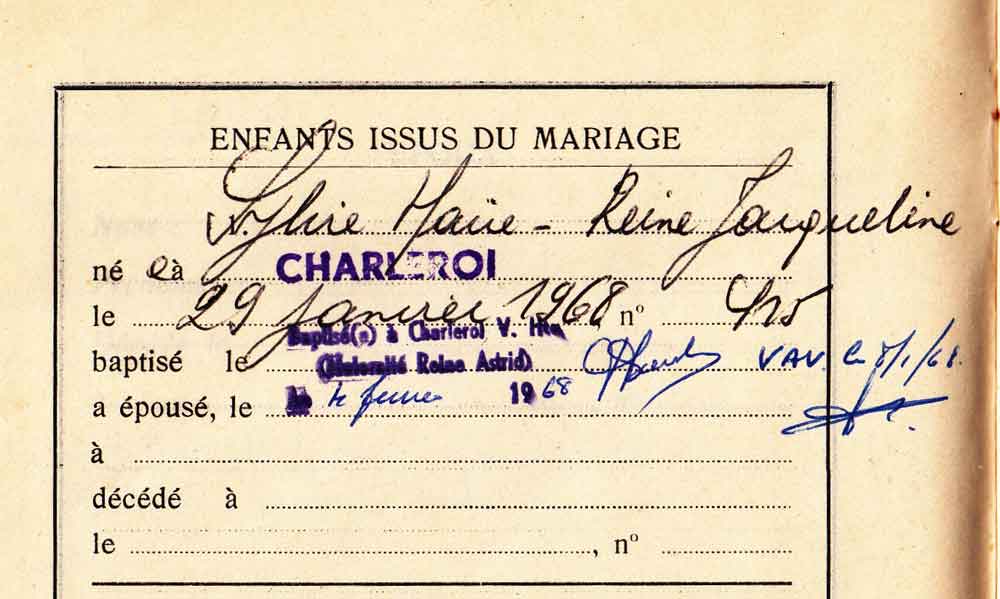 ENFANTS ISSUS DU MARIAGE
Sylvie Marie - Reine Jacqueline
né e à CHARLEROI
le 29 Janvier 1968, nº
baptisé le Baptisé(e) à Charleroi V. Hte
(Maternité Reine Astrid)
a épousé, le le 1968
VAV.
à
décédé à
le , nº